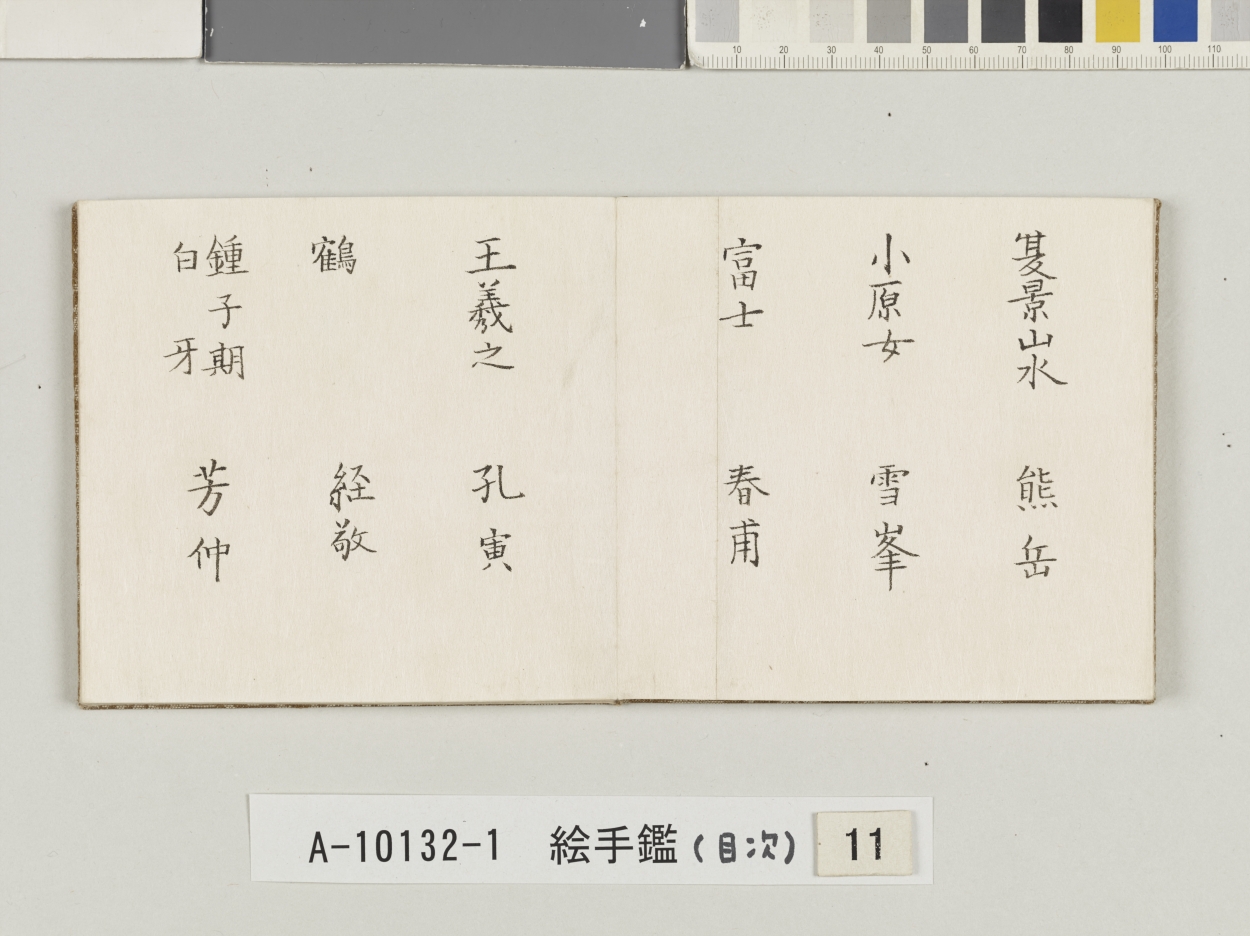 10 20 30 40 50 60 70 80 90 100 110
夏景山水 熊岳
小原女 雪峯
富士 春甫
王羲之 孔寅
鶴 経敬
鍾子期
白牙 芳仲
A-10132-1 絵手鑑(目次) 11